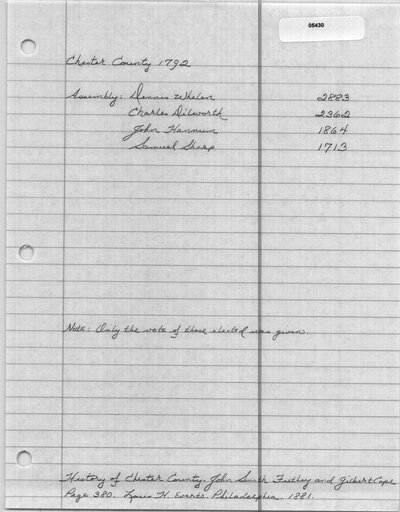 05430
Chester County 1792
Assembly: Dennis Whelen 2883
Charles Dilworth 2362
John Hannum 1864
Samuel Sharp 1713
Note: Only the vote of those elected was given.
History of Chester County. John Smith Futhey and Gilbert Cope
Page 380. Louis H. Everts. Philadelphia. 1881.